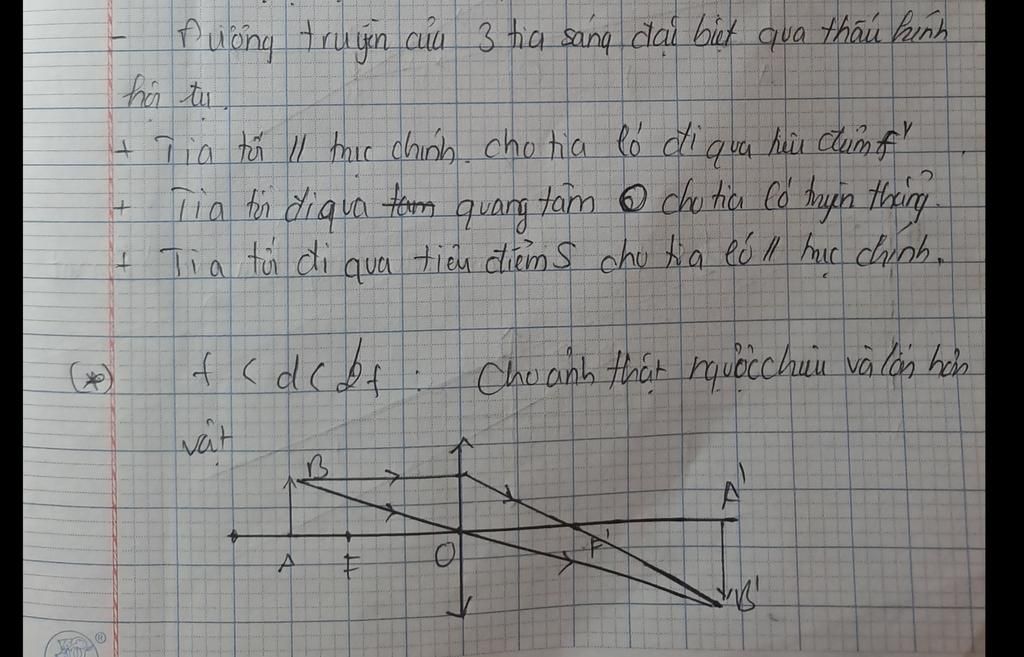 - Đường truyền của 3 tia sáng đặc biệt qua thấu kính
hội tụ.
+ Tia tới // trục chính. cho tia ló đi qua tiêu điểm F'
+ Tia tới đi qua quang tâm O cho tia ló truyền thẳng.
+ Tia tới đi qua tiêu điểm S cho tia ló // trục chính.
(*) f < d < 2f : Cho ảnh thật ngược chiều và lớn hơn
vật
B A'
A F O F'
B'